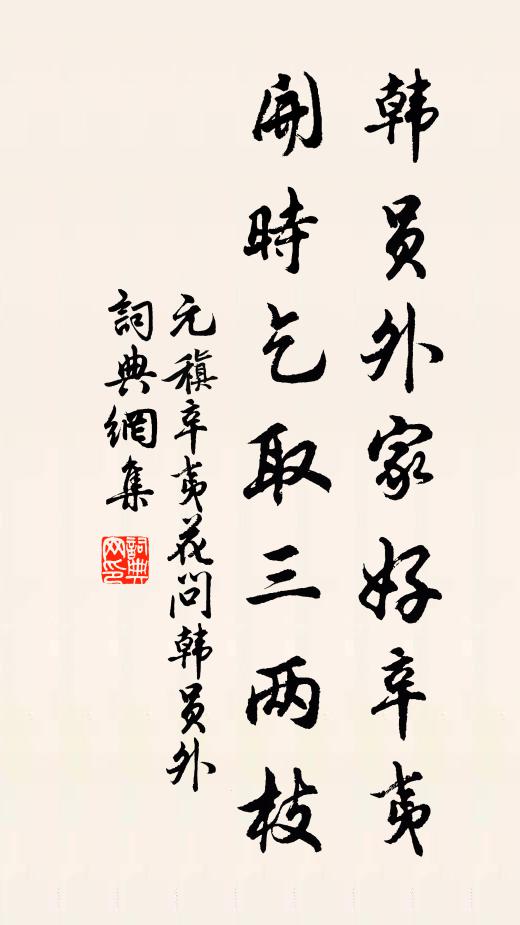 韩员外家好辛夷
開時乞取三两枝
元稹辛夷花问韩员外
詞典網集
詞典网印